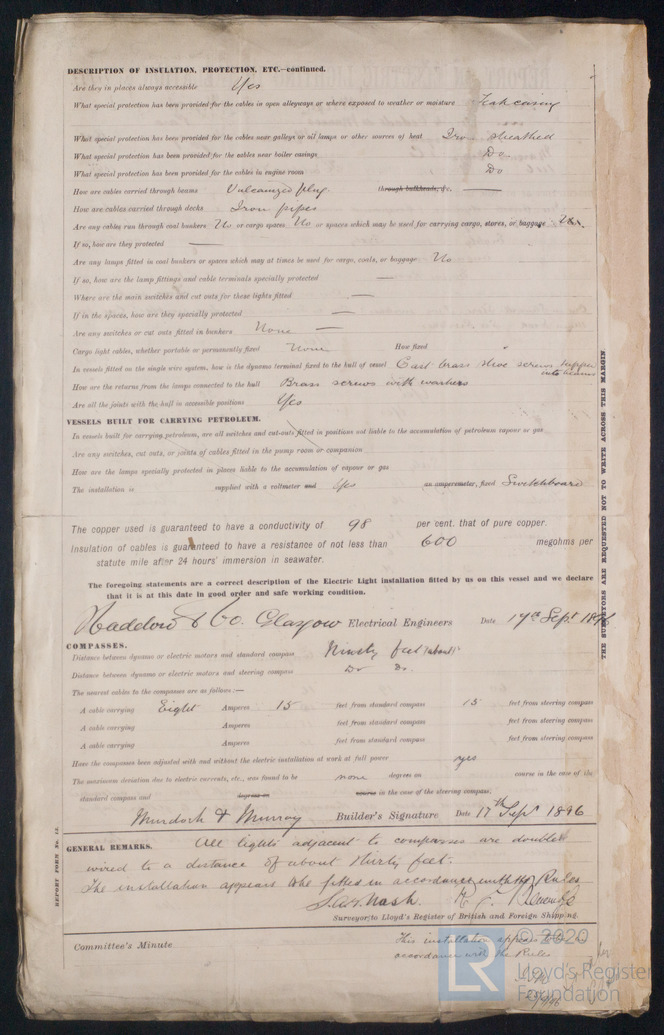 DESCRIPTION OF INSULATION, PROTECTION, ETC.—continued.
Are they in places always accessible Yes
What special protection has been provided for the cables in open alleyways or where exposed to weather or moisture Teak casing
What special protection has been provided for the cables near galleys or oil lamps or other sources of heat Iron sheathed
What special protection has been provided for the cables near boiler casings Do
What special protection has been provided for the cables in engine room Do
How are cables carried through beams Vulcanized plug. through bulkheads, &c. —
How are cables carried through decks Iron pipes
Are any cables run through coal bunkers No or cargo spaces No or spaces which may be used for carrying cargo, stores, or baggage No.
If so, how are they protected —
Are any lamps fitted in coal bunkers or spaces which may at times be used for cargo, coals, or baggage No
If so, how are the lamp fittings and cable terminals specially protected —
Where are the main switches and cut outs for these lights fitted —
If in the spaces, how are they specially protected —
Are any switches or cut outs fitted in bunkers None —
Cargo light cables, whether portable or permanently fixed None How fixed "
In vessels fitted on the single wire system, how is the dynamo terminal fixed to the hull of vessel Cast brass shoe screws tapped
into beams
How are the returns from the lamps connected to the hull Brass screws with washers
Are all the joints with the hull in accessible positions Yes
VESSELS BUILT FOR CARRYING PETROLEUM.
In vessels built for carrying petroleum, are all switches and cut-outs fitted in positions not liable to the accumulation of petroleum vapour or gas
Are any switches, cut outs, or joints of cables fitted in the pump room or companion
How are the lamps specially protected in places liable to the accumulation of vapour or gas
The installation is supplied with a voltmeter and Yes an amperemeter, fixed Switchboard
The copper used is guaranteed to have a conductivity of 98 per cent. that of pure copper.
Insulation of cables is guaranteed to have a resistance of not less than 600 megohms per
statute mile after 24 hours' immersion in seawater.
The foregoing statements are a correct description of the Electric Light installation fitted by us on this vessel and we declare
that it is at this date in good order and safe working condition.
Haddow & Co. Glasgow Electrical Engineers Date 17th Sept 1896
COMPASSES.
Distance between dynamo or electric motors and standard compass Ninety feet (about)
Distance between dynamo or electric motors and steering compass Do Do.
The nearest cables to the compasses are as follows:—
A cable carrying Eight Amperes 15 feet from standard compass 15 feet from steering compass
A cable carrying Amperes feet from standard compass feet from steering compass
A cable carrying Amperes feet from standard compass feet from steering compass
Have the compasses been adjusted with and without the electric installation at work at full power yes
The maximum deviation due to electric currents, etc., was found to be none degrees on course in the case of the
standard compass and degrees on course in the case of the steering compass.
Murdoch & Murray Builder's Signature Date 17th Sept 1896
GENERAL REMARKS. All lights adjacent to compasses are double
wired to a distance of about thirty feet.
The installation appears to be fitted in accordance with the Rules
Surveyor to Lloyd's Register of British and Foreign Shipping.
Committee's Minute
This installation appears to be in
accordance with the Rules
THE SURVEYORS ARE REQUESTED NOT TO WRITE ACROSS THIS MARGIN.
REPORT FORM No. 13.
LR
© 2020
Lloyd's Register
Foundation